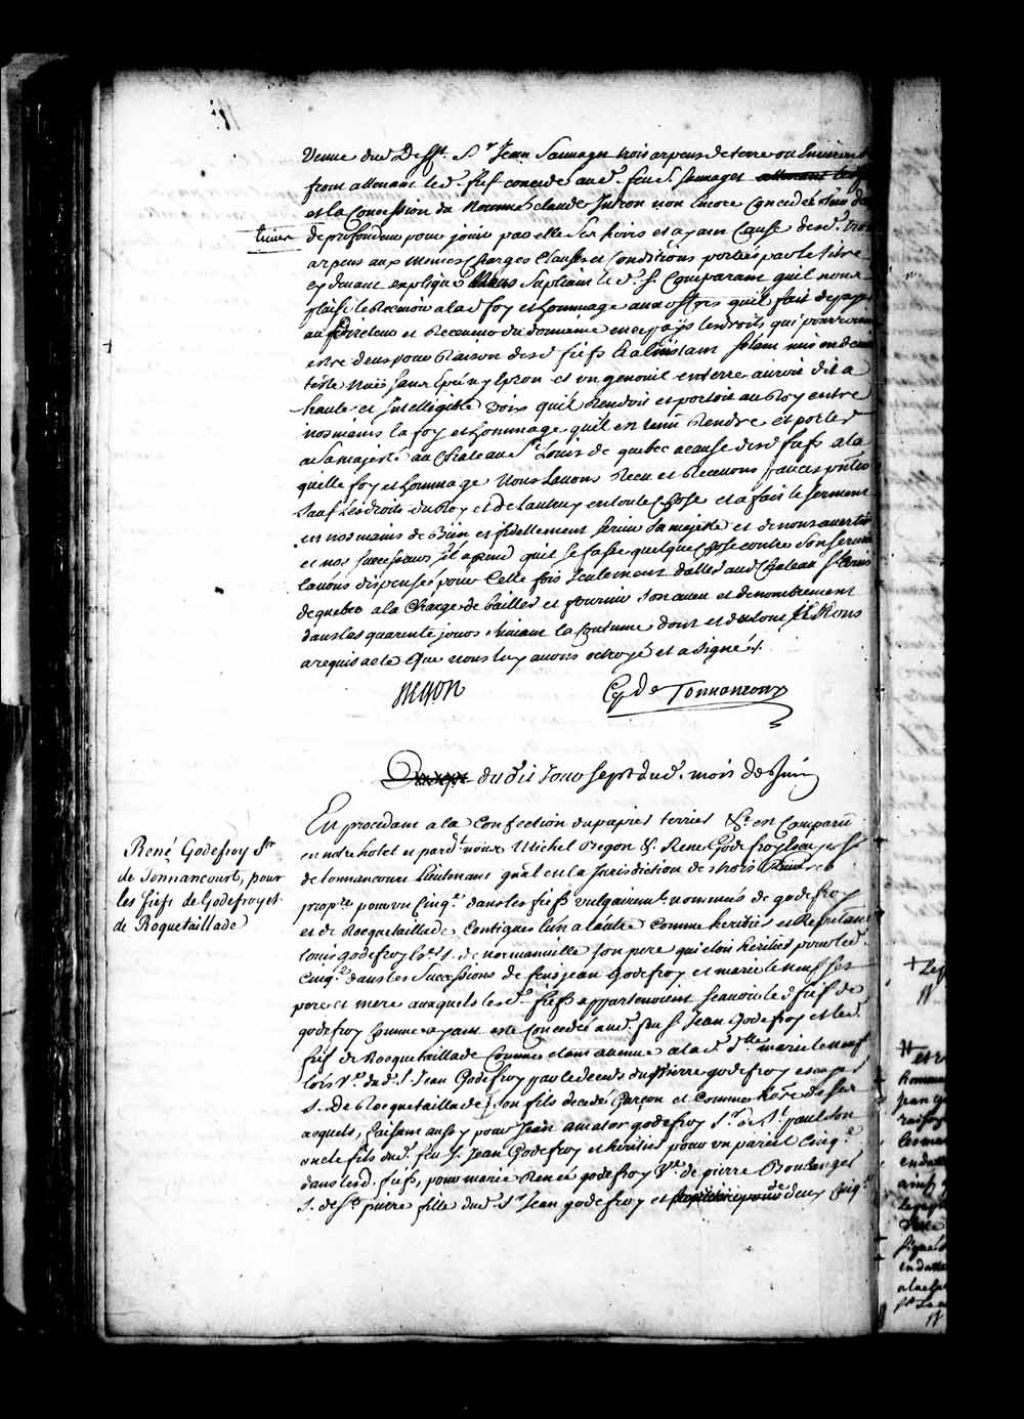 Veuve dud. Deff.t S.r Jean Sauvaget trois arpens de terre ou Environ
front attenant led. fief concedé aud. feu S. Sauvaget
et la Concession du Nommé Claude Jutron non Encore Concedée
de profondeur pour jouir par elle Ses hoirs et ayans Cause desd. trois
arpens aux mesmes Charges Clauses et Conditions portées par le titre
cy devant expliqué Nous Supliant le d. S. Comparant quil nous
plaise le Recevoir a la d. foy et hommage aux offres quil fait de payer
au Directeur et Receveur du domaine en ce pays les droits qui pourroient
estre deus pour Raison desd. fiefs Et a l'instant s'estant mis en devoir
teste Nuë sans Epée ny Epron et un genouil en terre auroit dit a
haute et Intelligible voix qu'il Rendoit et portoit au Roy entre
nos mains la foy et hommage qu'il est tenu Rendre et porter
a Sa majesté au Chateau S.t Louis de quebec a cause desd. fiefs a la
quelle foy et hommage Nous Lavons Receu et Recevons par ces p.ntes
Sauf les droits du Roy et de l'autruy en toute Chose et a fait le Serment
en nos mains de Bien et fidellement Servir Sa majesté et de nous avertir
et nos Successeurs s'il aprend qu'il se fasse quelque Chose contre Son Service
lavons dispensé pour Cette fois Seulement d'aller aud. Chateau S.t Louis
de quebec a la Charge de bailler et fournir Son aveu et denombrement
dans les quarente jours Suivant la Coutume dont et du tout
a requis acte Que nous luy avons octroyé et a Signé
Begon
C g De Tonnancour
du dit Jour Sept dud. mois de Juin
René Godefroy S.r
de Tonnancourt, pour
les fiefs de Godefroy et
de Roquetaillade
En procedant a la Confection du papier terrier &.c est Comparu
en notre hotel et pard.t nous Michel Begon &. René Godefroy Ecuyer S.
de tonnancour Lieutenant gnâl en la Jurisdiction des trois Rivieres
prop.re pour un Cinq.e dans les fiefs vulgairem.t nommés de godefroy
et de Rocquetaillade Contigues l'un a l'autre Comme heritier et Representant
Louis godefroy S. de normanville son pere qui etoit heritier pour led.
Cinq.e dans les Successions de feus jean Godefroy et marie le neuf ses
pere et mere auxquels lesd. fiefs appartenoient Scavoir led. fief de
godefroy Comme ayant esté Concedé aud. feu S. Jean Godefroy et led.
fief de Rocquetaillade Comme etant avenu a la d. d.lle marie le neuf
lors V.e dud. S. Jean Godefroy par le deceds du S. Pierre godefroy escuyer
S. De Rocquetaillade son fils decedé Garçon et Comme de ses
acquets, faisant aussy pour Jean amator godefroy S.r de S.t paul son
oncle fils dud. feu S. Jean Godefroy et heritier pour un pareil Cinq.e
dans lesd. fiefs, pour marie Renée godefroy V.e de pierre Boulanger
S. de S.t pierre fille dud. S.r Jean godefroy et de deux Cinq.e